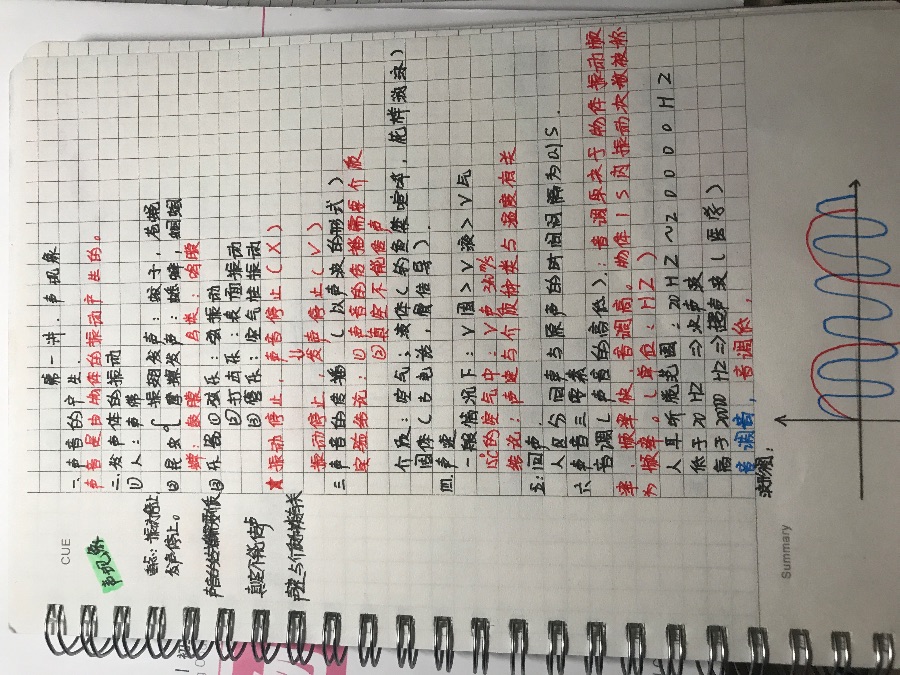 CUE
声现象
重点：振动停止，
发声停止。
声音的传播需要介质
真空不能传声
声速与介质种类有关
第一讲．声现象
一．声音的产生
声音是由物体的振动产生的。
二．发声体的振动
① 人：声带
② 昆虫｛振翅发声：蚊子，苍蝇
摩擦发声：蟋蟀 蝈蝈
蝉：鼓膜 鸟类：鸣膜
③ 乐器 ① 弦乐：弦振动
② 打击乐：表面振动
③ 管乐：空气柱振动
★ 振动停止，声音停止（X）
振动停止，发声停止（√）
三 声音的传播（以声波的形式）
实验结论：① 声音的传播需要介质
② 真空不能传声
介质：空气；液体（钓鱼禁喧哗，花样游泳）
固体（土电话，骨传导）．
四．声速
一般情况下：V固＞V液＞V气
15℃的空气中：V声=340m/s
结论：声速与介质种类与温度有关
五：回声．
人区分回声与原声的时间间隔为0.1S．
六 声音三要素
音调（声音的高低）．：音调取决于物体振动频
率．频率快，音调高。物体1S内振动次数被称
为频率。（单位：HZ）
人耳听觉范围：20HZ～20000HZ
低于20HZ ⇒次声波
高于20000HZ⇒超声波（医学）
音调高，音调低，
波形图：
Summary